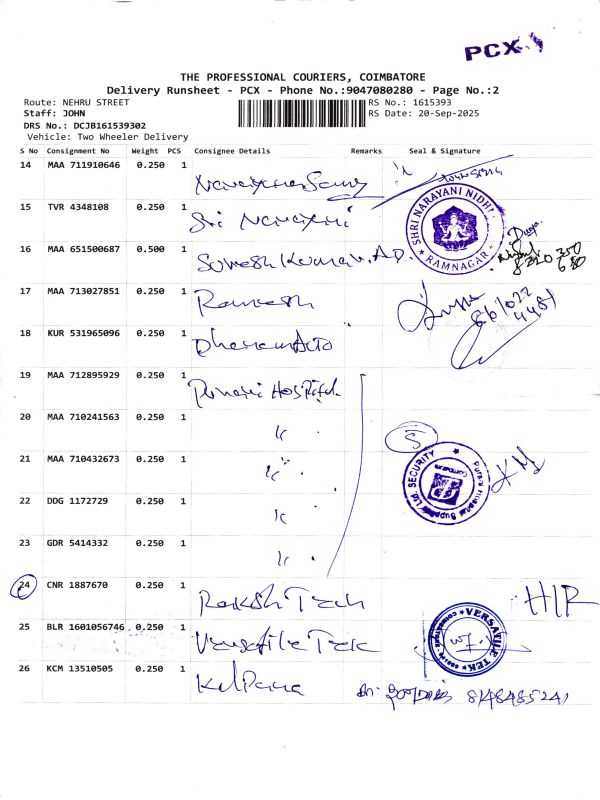 PCX
THE PROFESSIONAL COURIERS, COIMBATORE
Delivery Runsheet - PCX - Phone No.:9047080280 - Page No.:2
Route: NEHRU STREET
RS No.: 1615393
Staff: JOHN
RS Date: 20-Sep-2025
DRS No.: DCJB161539302
Vehicle: Two Wheeler Delivery
S No Consignment No Weight PCS Consignee Details Remarks Seal & Signature
14 MAA 711910646 0.250 1 Narayana Samy
15 TVR 4348108 0.250 1 Sri Narayani
SHRI NARAYANI NIDHI
RAMNAGAR
16 MAA 651500687 0.500 1 Suresh Kumar. A.D.
17 MAA 713027851 0.250 1 Ramesh
18 KUR 531965096 0.250 1 Dharani Auto
19 MAA 712895929 0.250 1 Hospital
20 MAA 710241563 0.250 1 "
5
21 MAA 710432673 0.250 1 "
SECURITY
22 DDG 1172729 0.250 1 "
23 GDR 5414332 0.250 1 "
24 CNR 1887670 0.250 1 Raksh Tech
H/R
25 BLR 1601056746 0.250 1 Versatile Tek
VERSATILE TEK
26 KCM 13510505 0.250 1 Kalpana
8148485241